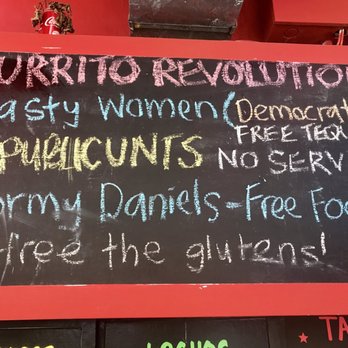 URRITO REVOLUTIO
asty Women (Democrat
FREE TEQU
PUBLICUNTS NO SERV
ormy Daniels-Free Foo
free the glutens!
TA